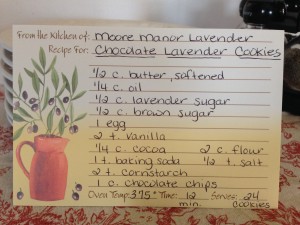 From the Kitchen of: Moore Manor Lavender
Recipe For: Chocolate Lavender Cookies
1/2 c. butter, softened
1/4 c. oil
1/2 c. lavender sugar
1/2 c. brown sugar
1 egg
2 t. vanilla
1/4 c. cocoa 2 c. flour
1 t. baking soda 1/2 t. salt
2 t. cornstarch
1 c. chocolate chips
Oven Temp: 375° Time: 12 min. Serves: 24 cookies